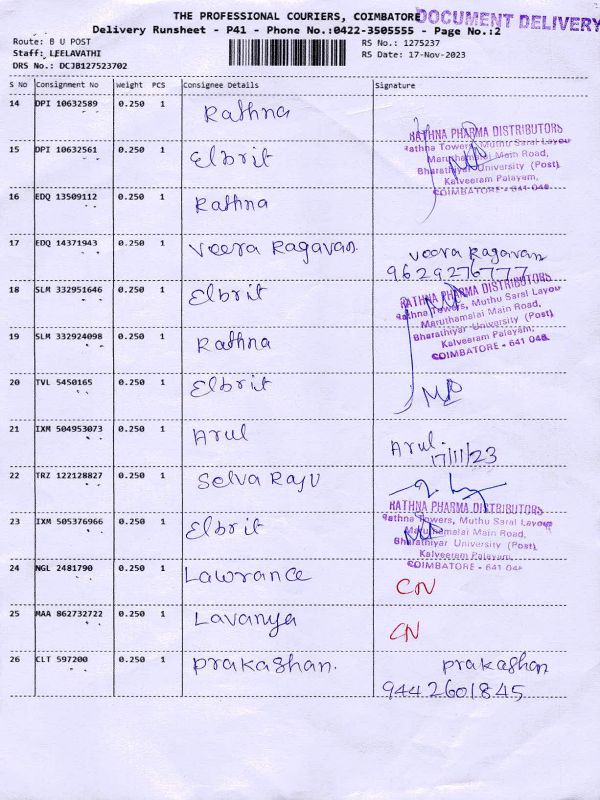 THE PROFESSIONAL COURIERS, COIMBATORE
DOCUMENT DELIVERY
Delivery Runsheet - P41 - Phone No.:0422-3505555 - Page No.:2
Route: B U POST
RS No.: 1275237
Staff: LEELAVATHI
RS Date: 17-Nov-2023
DRS No.: DCJB127523702
S No Consignment No Weight PCS Consignee Details Signature
14 DPI 10632589 0.250 1 Rathna
RATHNA PHARMA DISTRIBUTORS
Rathna Towers, Muthu Saral Layou
Maruthamalai Main Road,
Bharathiyar University (Post)
Kalveeram Palayam,
COIMBATORE - 641 046.
15 DPI 10632561 0.250 1 Elbrit
16 EDQ 13509112 0.250 1 Rathna
17 EDQ 14371943 0.250 1 Veera Ragavan. Veera Ragavan
9629276777
18 SLM 332951646 0.250 1 Elbrit
RATHNA PHARMA DISTRIBUTORS
Rathna Towers, Muthu Saral Layou
Maruthamalai Main Road,
Bharathiyar University (Post)
Kalveeram Palayam,
COIMBATORE - 641 046.
19 SLM 332924098 0.250 1 Rathna
20 TVL 5450165 0.250 1 Elbrit
21 IXM 504953073 0.250 1 Arul Arul.
17/11/23
22 TRZ 122128827 0.250 1 Selva Raju
RATHNA PHARMA DISTRIBUTORS
Rathna Towers, Muthu Saral Layout
Maruthamalai Main Road,
Bharathiyar University (Post)
Kalveeram Palayam,
COIMBATORE - 641 046
23 IXM 505376966 0.250 1 Elbrit
24 NGL 2481790 0.250 1 Lawrance CN
25 MAA 862732722 0.250 1 Lavanya CN
26 CLT 597200 0.250 1 Prakashan. Prakashan
9442601845